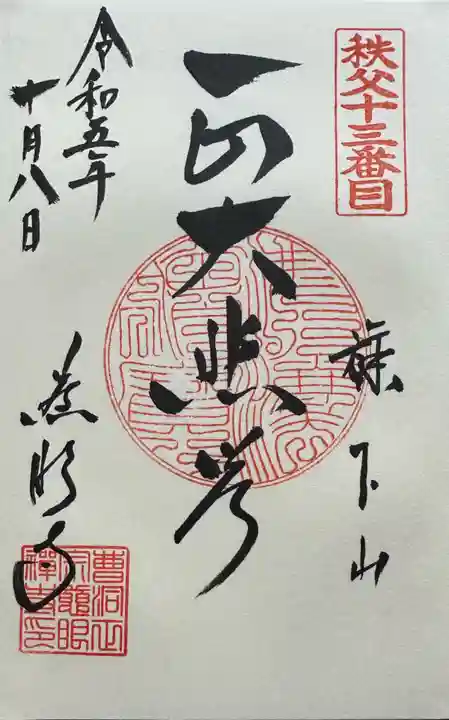 秩父十三番目
旗下山
大悲
令和五年
十月八日
慈眼寺
曹洞正
宗慈眼
禪寺印